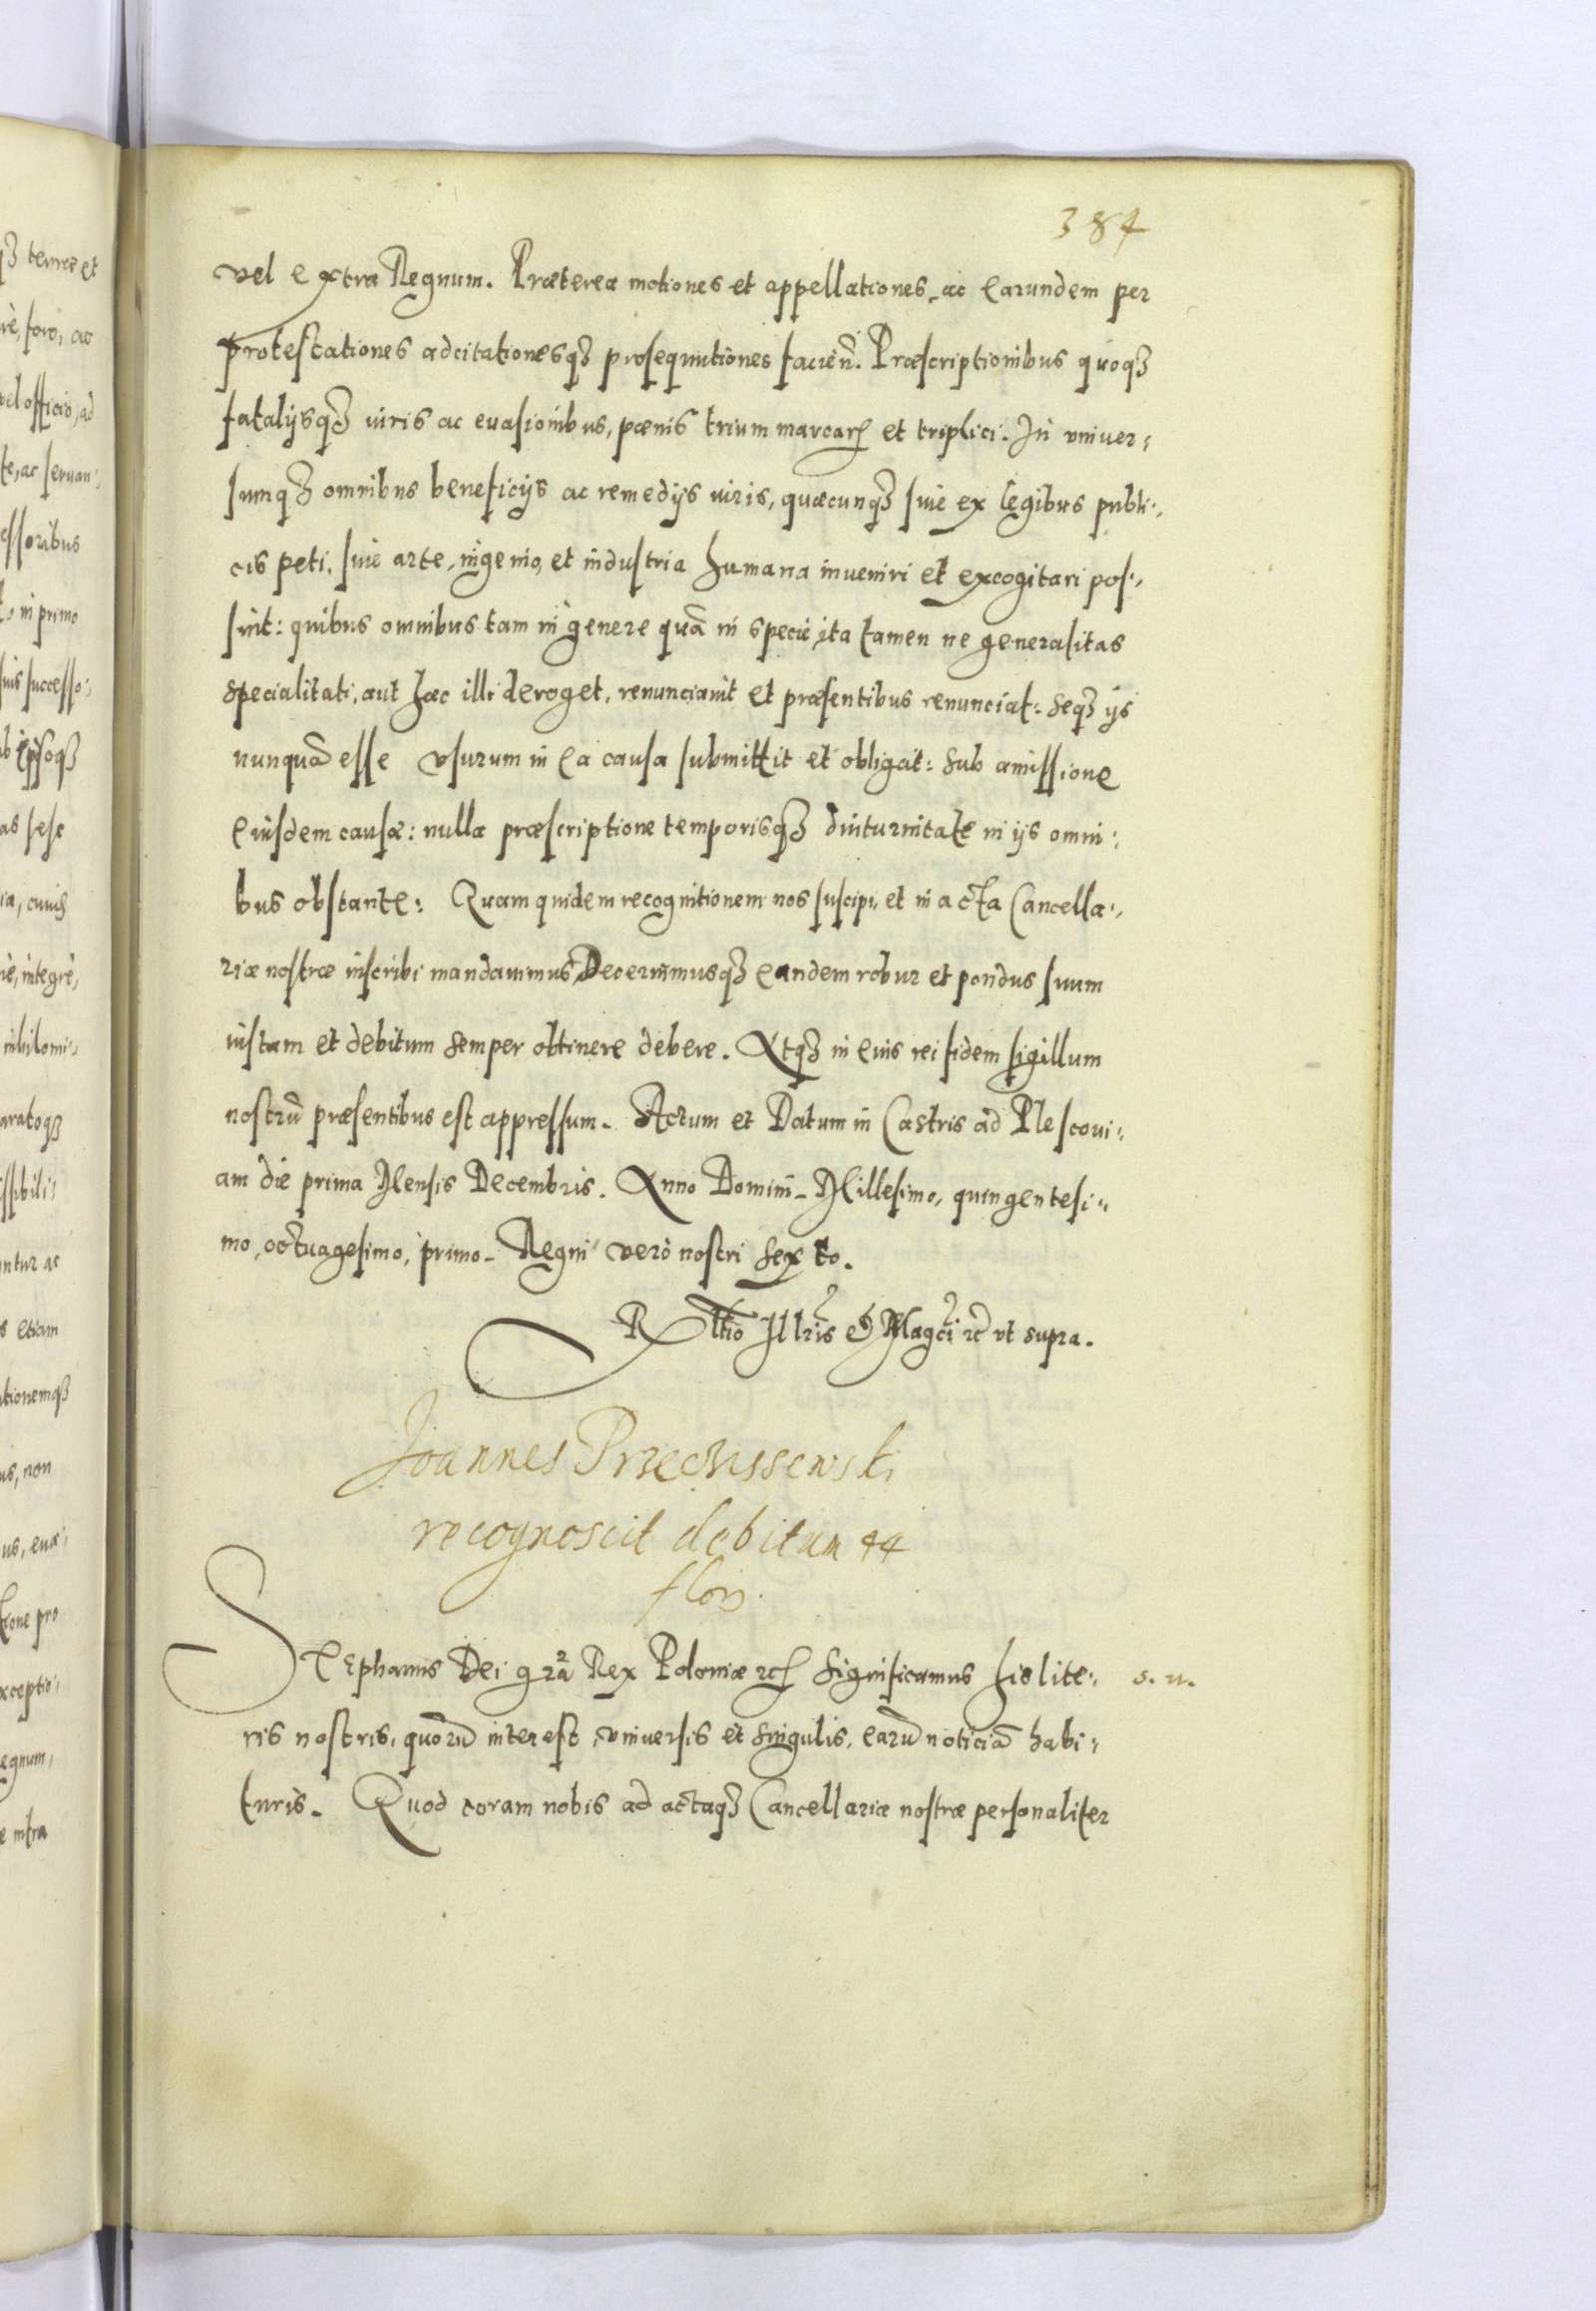 384
vel extra Regnum. Præterea motiones et appellationes, ac earundem per
protestationes adcitationesqꝫ prosequutiones facień. Præscriptionibus quoqꝫ
fatalijsqꝫ iuris ac euasionibus, pænis trium marcarꝝ et triplici. In vniuer:
sumqꝫ omnibus beneficijs ac remedijs iuris, quæcunqꝫ siue ex legibus publi:
cis peti, siue arte, ingenio, et industria humana inueniri et excogitari pos:
sint: quibus omnibus tam in genere quā in specie ita tamen ne generalitas
specialitati, aut hæc illi deroget, renunciauit et præsentibus renunciat: seqꝫ ijs
nunquā esse vsurum in ea causa submittit et obligat: sub amissione
eiusdem causæ: nulla præscriptione temporisqꝫ diuturnitate in ijs omni:
bus obstante: Quam quidem recognitionem nos suscipi, et in acta Cancella:
riæ nostræ inscribi mandauimus Decernimusqꝫ eandem robur et pondus suum
iustum et debitum semper obtinere debere. Atqꝫ in eius rei fidem sigillum
nostrū præsentibus est appressum. Actum et Datum in Castris ad Plescoui:
am die prima Mensis Decembris. Anno Domini Millesimo, quingentesi:
mo, octuagesimo, primo. Regni verò nostri sexto.
Rltio Illris et Magci ꝛc vt supra.
Joannes Przechssewski
recognoscit debitum 44
flor.
Stephanus Dei gra Rex Poloniæ ꝛc Significamus his lite: s. n.
ris nostris, quorū interest, vniuersis et singulis, earū noticiā habi:
turis. Quod coram nobis ad actaqꝫ Cancellariæ nostræ personaliter